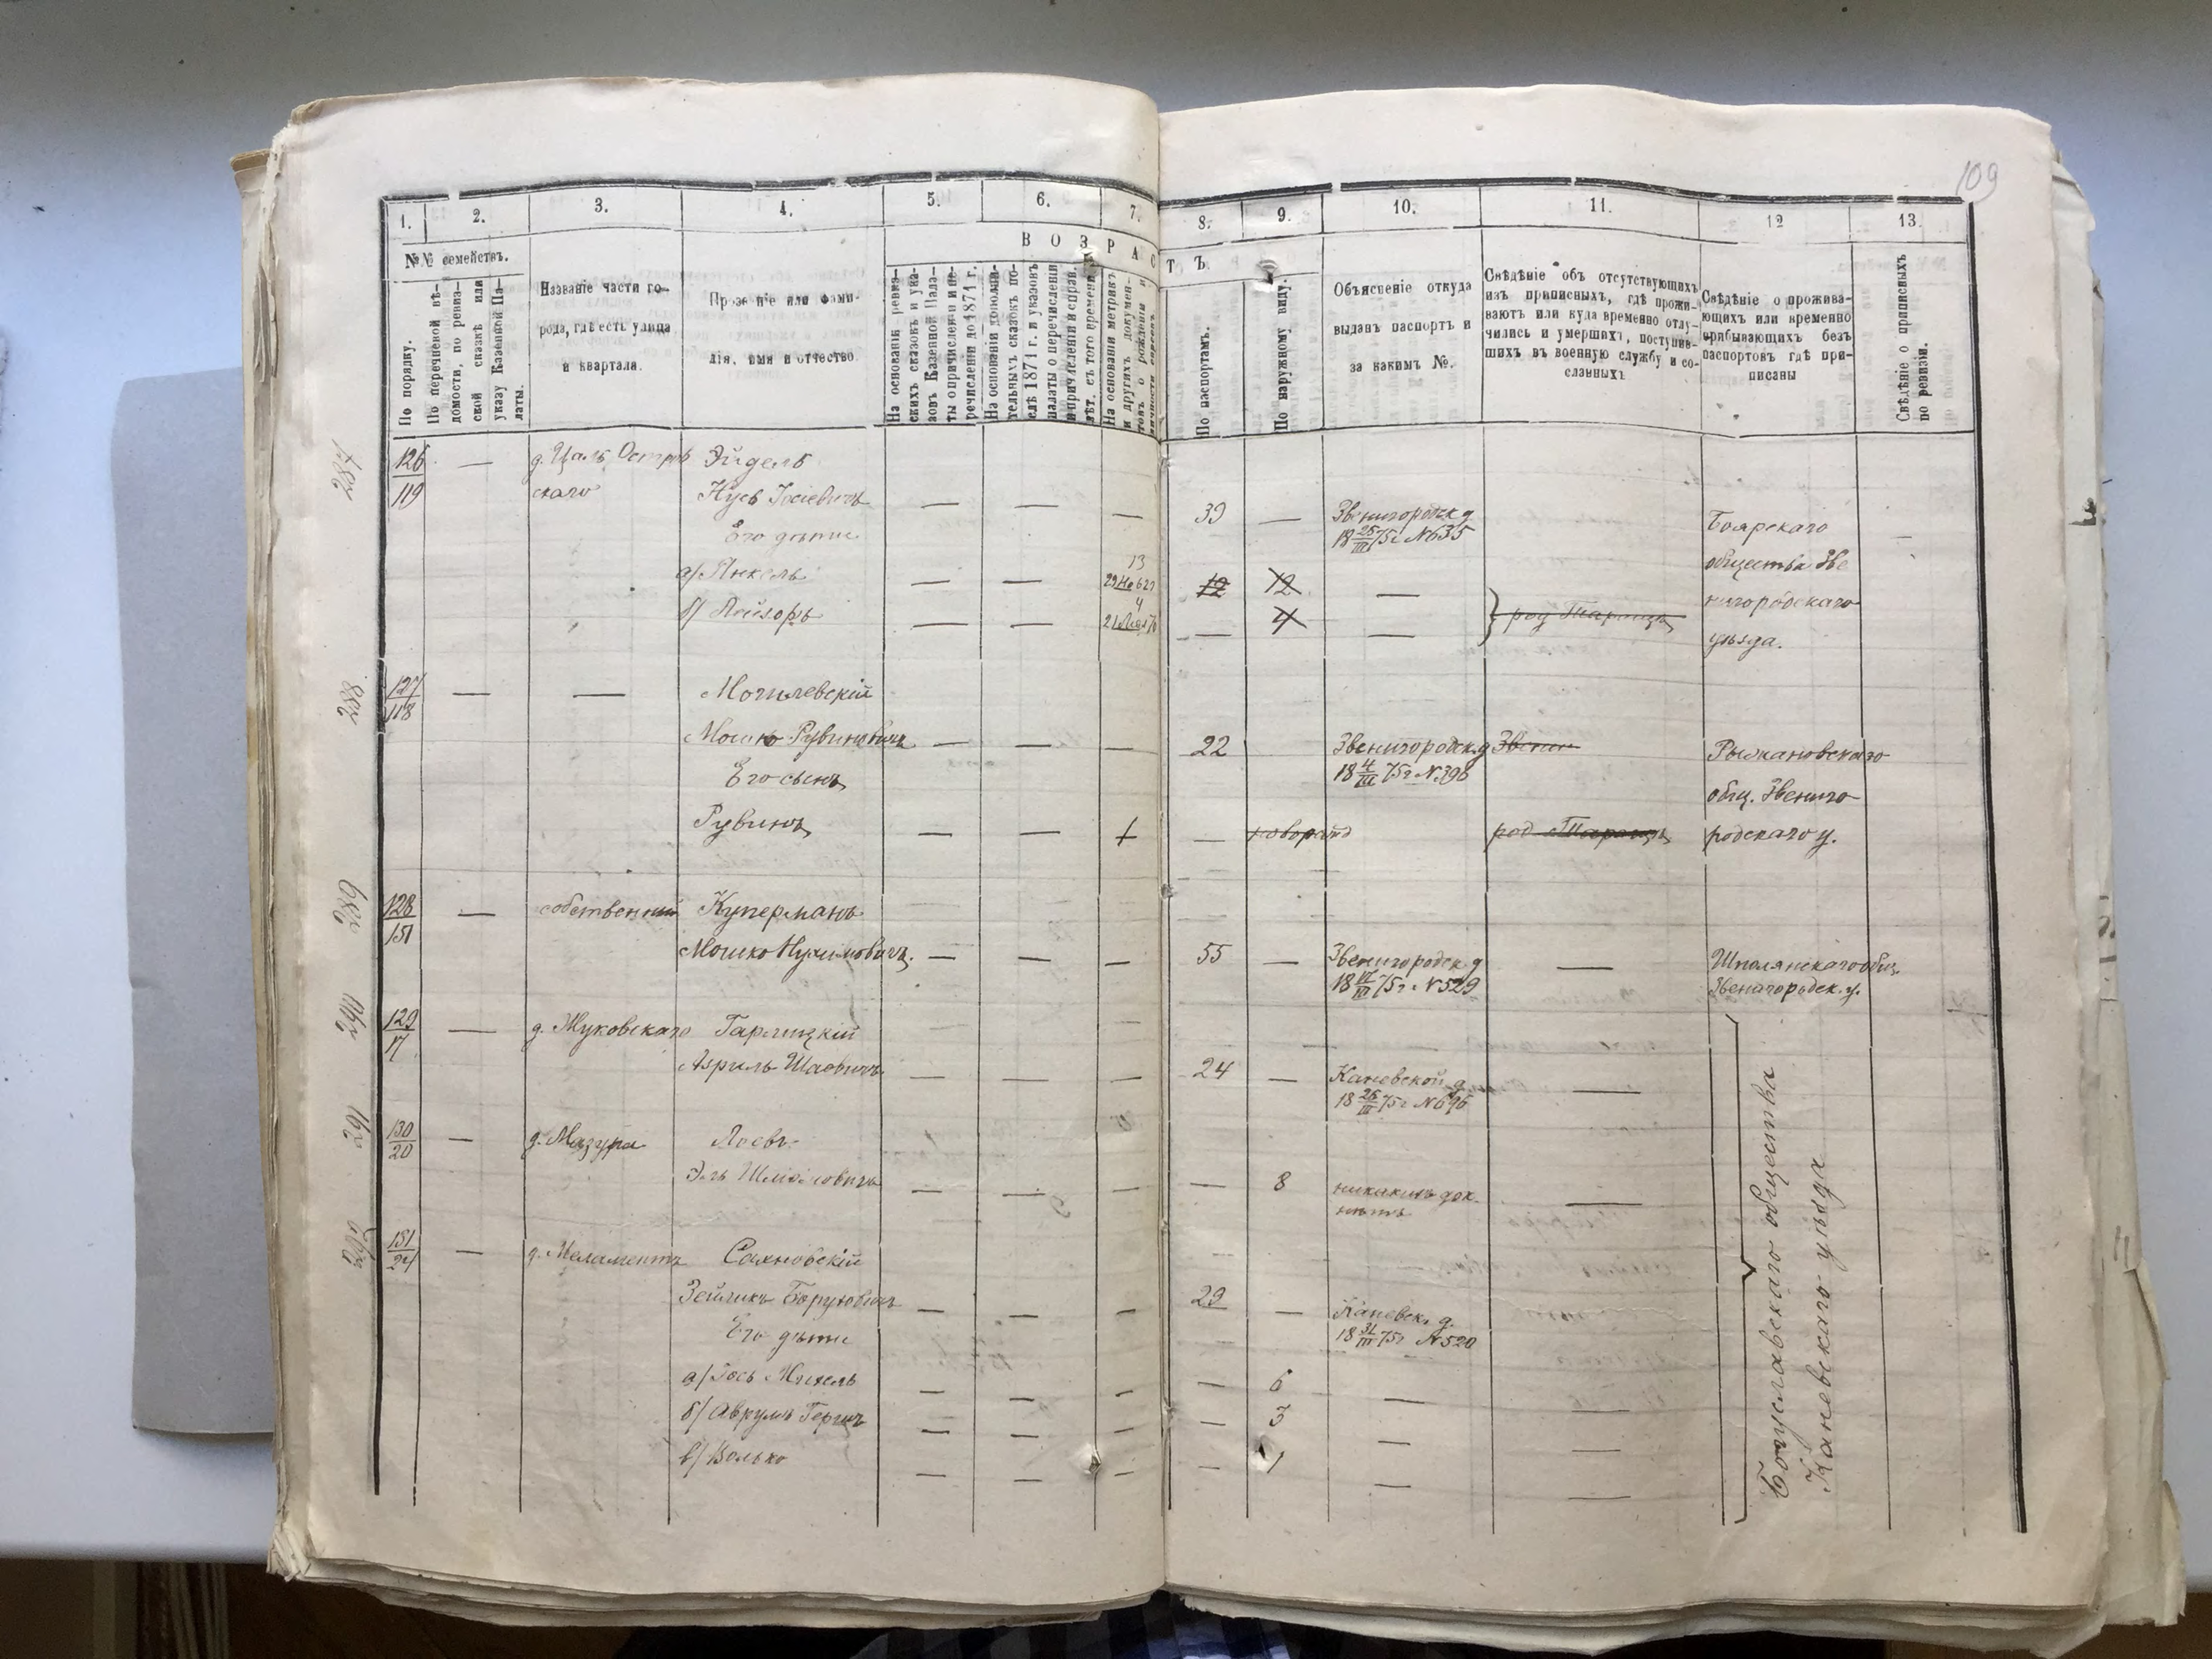 109
1. 2. 3. 4. 5. 6. 7. 8. 9. 10. 11. 12 13.
№№ семействъ.
По порядку.
По перечневой вѣ-
домости, по ревиз-
ской сказкѣ или
указу Казенной Па-
латы.
Названіе части го-
рода, гдѣ есть улица
и квартала.
Прозваніе или фами-
лія, имя и отчество
ВОЗРАСТЪ.
На основаніи ревиз-
скихъ сказокъ и ука-
зовъ Казенной Пала-
ты о причисленіи и пе-
речисленіи до 1871 г.
На основаніи дополни-
тельныхъ сказокъ по-
слѣ 1871 г. и указовъ
палаты о перечисленіи
и причисленіи и справ.
лѣт. съ того времени
На основаніи метрикъ
и другихъ докумен-
товъ о рожденіи и
личности евреевъ
По паспортамъ.
По наружному виду.
Объясненіе откуда
выданъ паспортъ и
за какимъ №.
Свѣдѣніе объ отсутствующихъ
изъ приписныхъ, гдѣ прожи-
ваютъ или куда временно отлу-
чились и умершихъ, поступив-
шихъ въ военную службу и со-
сланныхъ
Свѣдѣніе о прожива-
ющихъ или временно
прибывающихъ безъ
паспортовъ гдѣ при-
писаны
Свѣдѣніе о приписныхъ
по ревизіи.
287
126 — д. Цаль Остров Эйдель
119 скаго Нусь Іосіевичъ — — — 39 — Звенигородск. д
18 25/III 75 г. №635
Боярскаго
общества Зве
нигородскаго
уѣзда.
Его дѣти
а/ Янкель — — 13 12 12 —
б/ Лейзоръ — — 4 — 4 — род Тараща
288
127 — — Могилевскій
118
Мошко Рувиновичъ — — — 22 Звенигородск. д Звени
18 4/III 75 г №396
Рыжановскаго
общ. Звениго
родскаго у.
Его сынъ
Рувинъ — — — новорожд род Таращѣ
289
128 — собственный Куперманъ
151
Мошко Нухимовичъ. — — — 55 — Звенигородск. д —
18 17/III 75 г. №529
Шполянскаго общ.
Звенигородск. у.
290
129 — д. Жуковскаго Гарлицкій
17
Азриль Шаевичъ — — — 24 — Каневской д —
18 26/III 75 г №696
291
130 — д. Мазура Лоевъ
20
— — — — 8 никакихъ док. —
нѣтъ
292
131 — д. Меламентъ Сахновскій
21
Зейликъ Боруховичъ — — — 29 — Каневск. д.
18 31/III 75 г №520
Его дѣти
а/ Іось Михель — — — — 6 — —
б/ Аврумъ Гершъ — — — — 3 — —
в/ Волько — — — — 1 — —
Богуславскаго общества
Каневскаго уѣзда